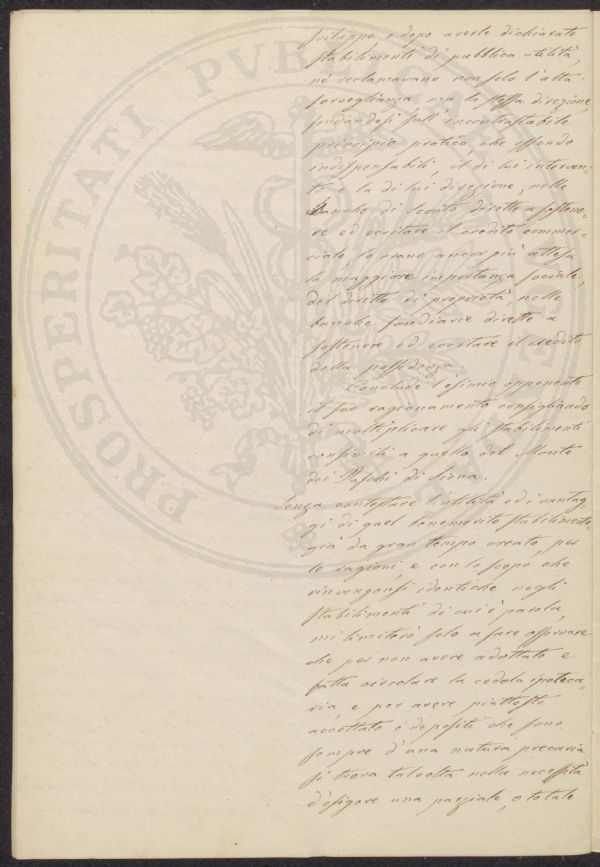 sviluppo e dopo averle dichiarate
stabilimenti di pubblica utilità,
nè reclamavano non solo l'alta
sorveglianza ma la stessa direzione,
fondandosi sull'incontrastabile
principio pratico, che essendo
indispensabili, il di lui interven-
to e la di lui direzione, nelle
Banche di sconto dirette a sostene-
re ed eccitare il credito commer-
ciale, lo erano ancor più attesa
la maggiore importanza sociale,
del diritto di proprietà, nelle
banche fondiarie dirette a
sostenere ed eccitare il credito
della possidenza.
Conclude l'esimio opponente
il suo ragionamento consigliando
di moltiplicare gli stabilimenti
consimili a quello del Monte
dei Paschi di Siena.
Senza contestare l'utilità ed i vantag-
gi di quel benemerito stabilimento
già da gran tempo creato, per
le ragioni, e con lo scopo che
rinvengonsi identiche negli
stabilimenti di cui è parola,
mi limiterò solo a fare osservare
che per non avere adottato e
fatta circolare la cedola ipoteca-
ria, e per avere piuttosto
accettato i depositi che sono
sempre d'una natura precaria
si trova talvolta nella necessità
d'esigere una parziale, o totale
PROSPERITATI PVBLICAE